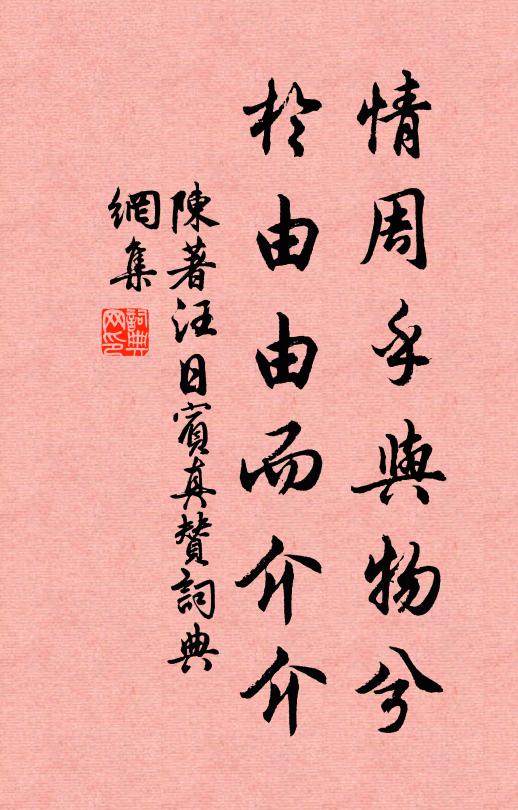 情周乎與物兮
於由由而介介
陳著汪日賓真贊詞典
網集
詞典
网印